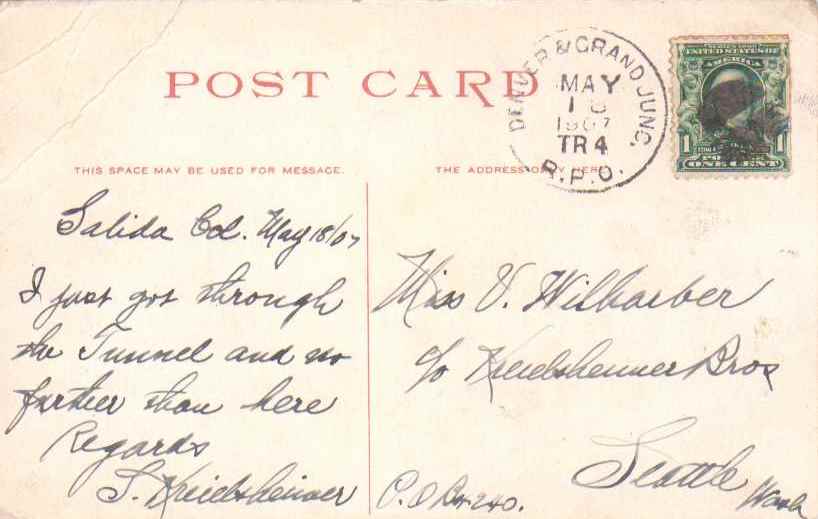 POST CARD
DENVER & GRAND JUNC.
MAY
18
1907
TR 4
R.P.O.
SERIES 1902
UNITED STATES OF
AMERICA
1 1
ONE CENT
THIS SPACE MAY BE USED FOR MESSAGE.
THE ADDRESS ONLY HERE
Salida Col. May 18/07
I just got through
the Tunnel and no
farther than here
Regards
S. Kreielsheimer
Miss V. Wilbarber
c/o Kreielsheimer Bros
Seattle Wash
P.O Box 240.